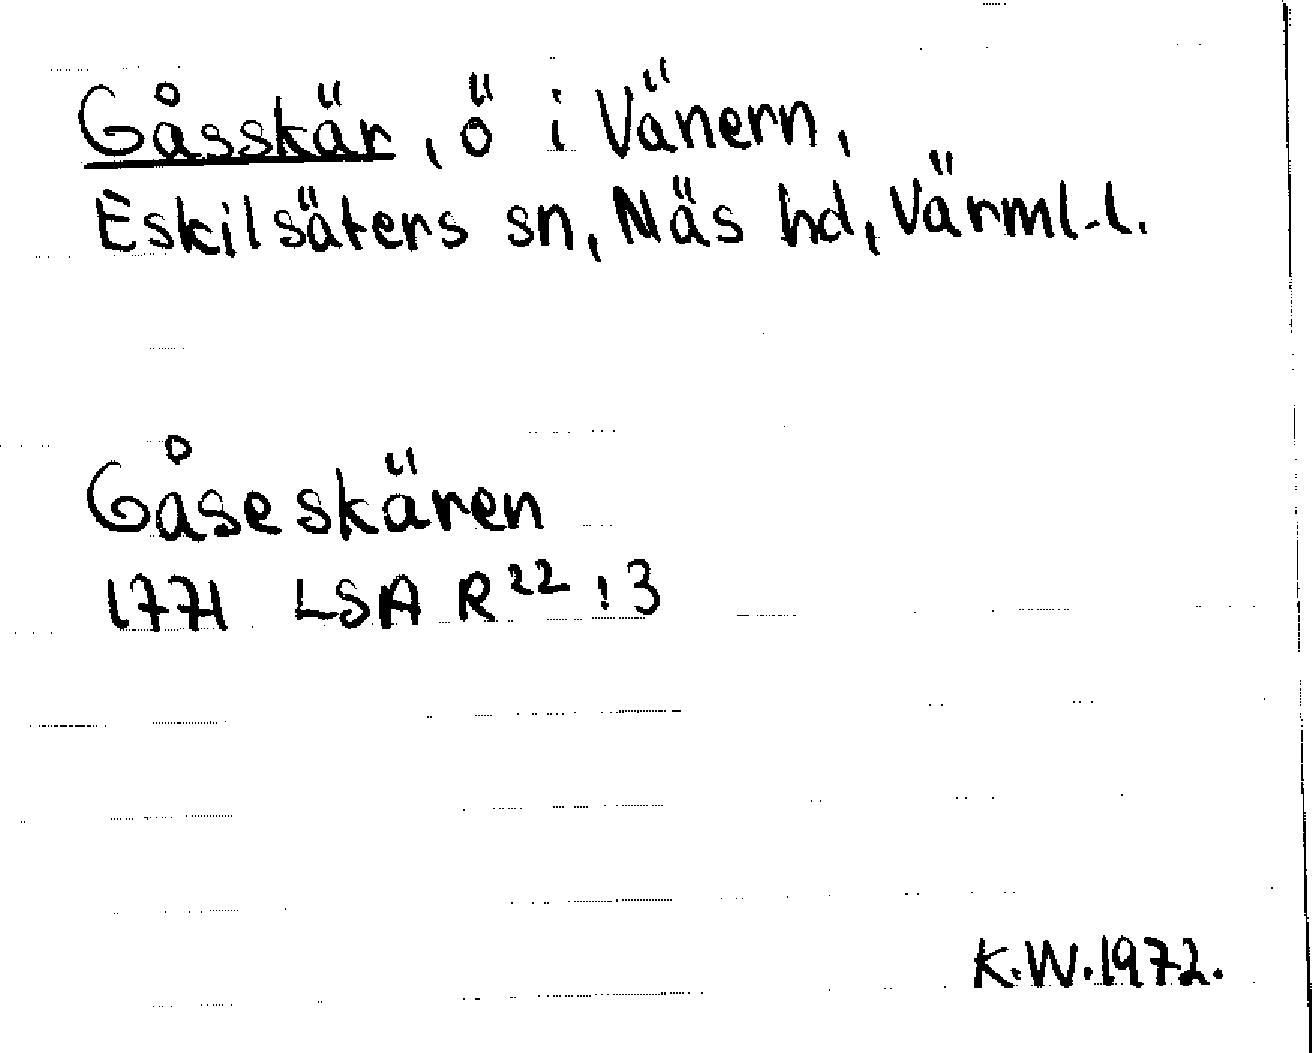 Gåsskär, ö i Vänern,
Eskilsäters sn, Näs hd, Värml.l.
Gåseskären
1771 LSA R²² : 3
K.W.1972.